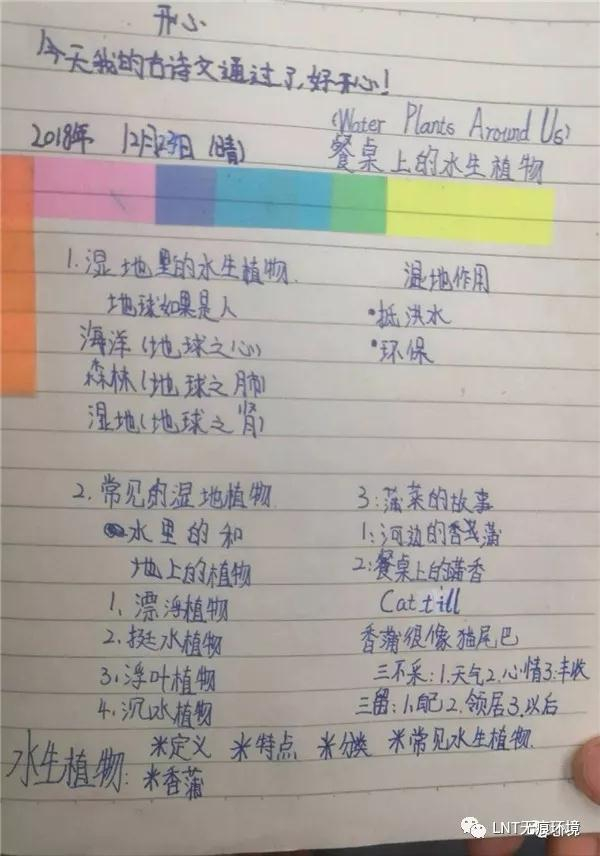 开心
今天我的古诗文通过了,好开心!
2018年 12月23日 (晴)
(Water Plants Around Us)
餐桌上的水生植物
1.湿地里的水生植物.
地球如果是人
海洋(地球之心)
森林(地球之肺)
湿地(地球之肾)
湿地作用
•抵洪水
•环保
2.常见的湿地植物
水里的和
地上的植物
1、漂浮植物
2.挺水植物
3.浮叶植物
4.沉水植物
3:蒲菜的故事
1:河边的香蒲
2:餐桌上的蒲香
Cattill
香蒲很像猫尾巴
三不采:1.天气2.心情3:丰收
三留:1.自己2.领居3.以后
水生植物: 米定义 米特点 米分类 米常见水生植物.
米香蒲
LNT无痕环境